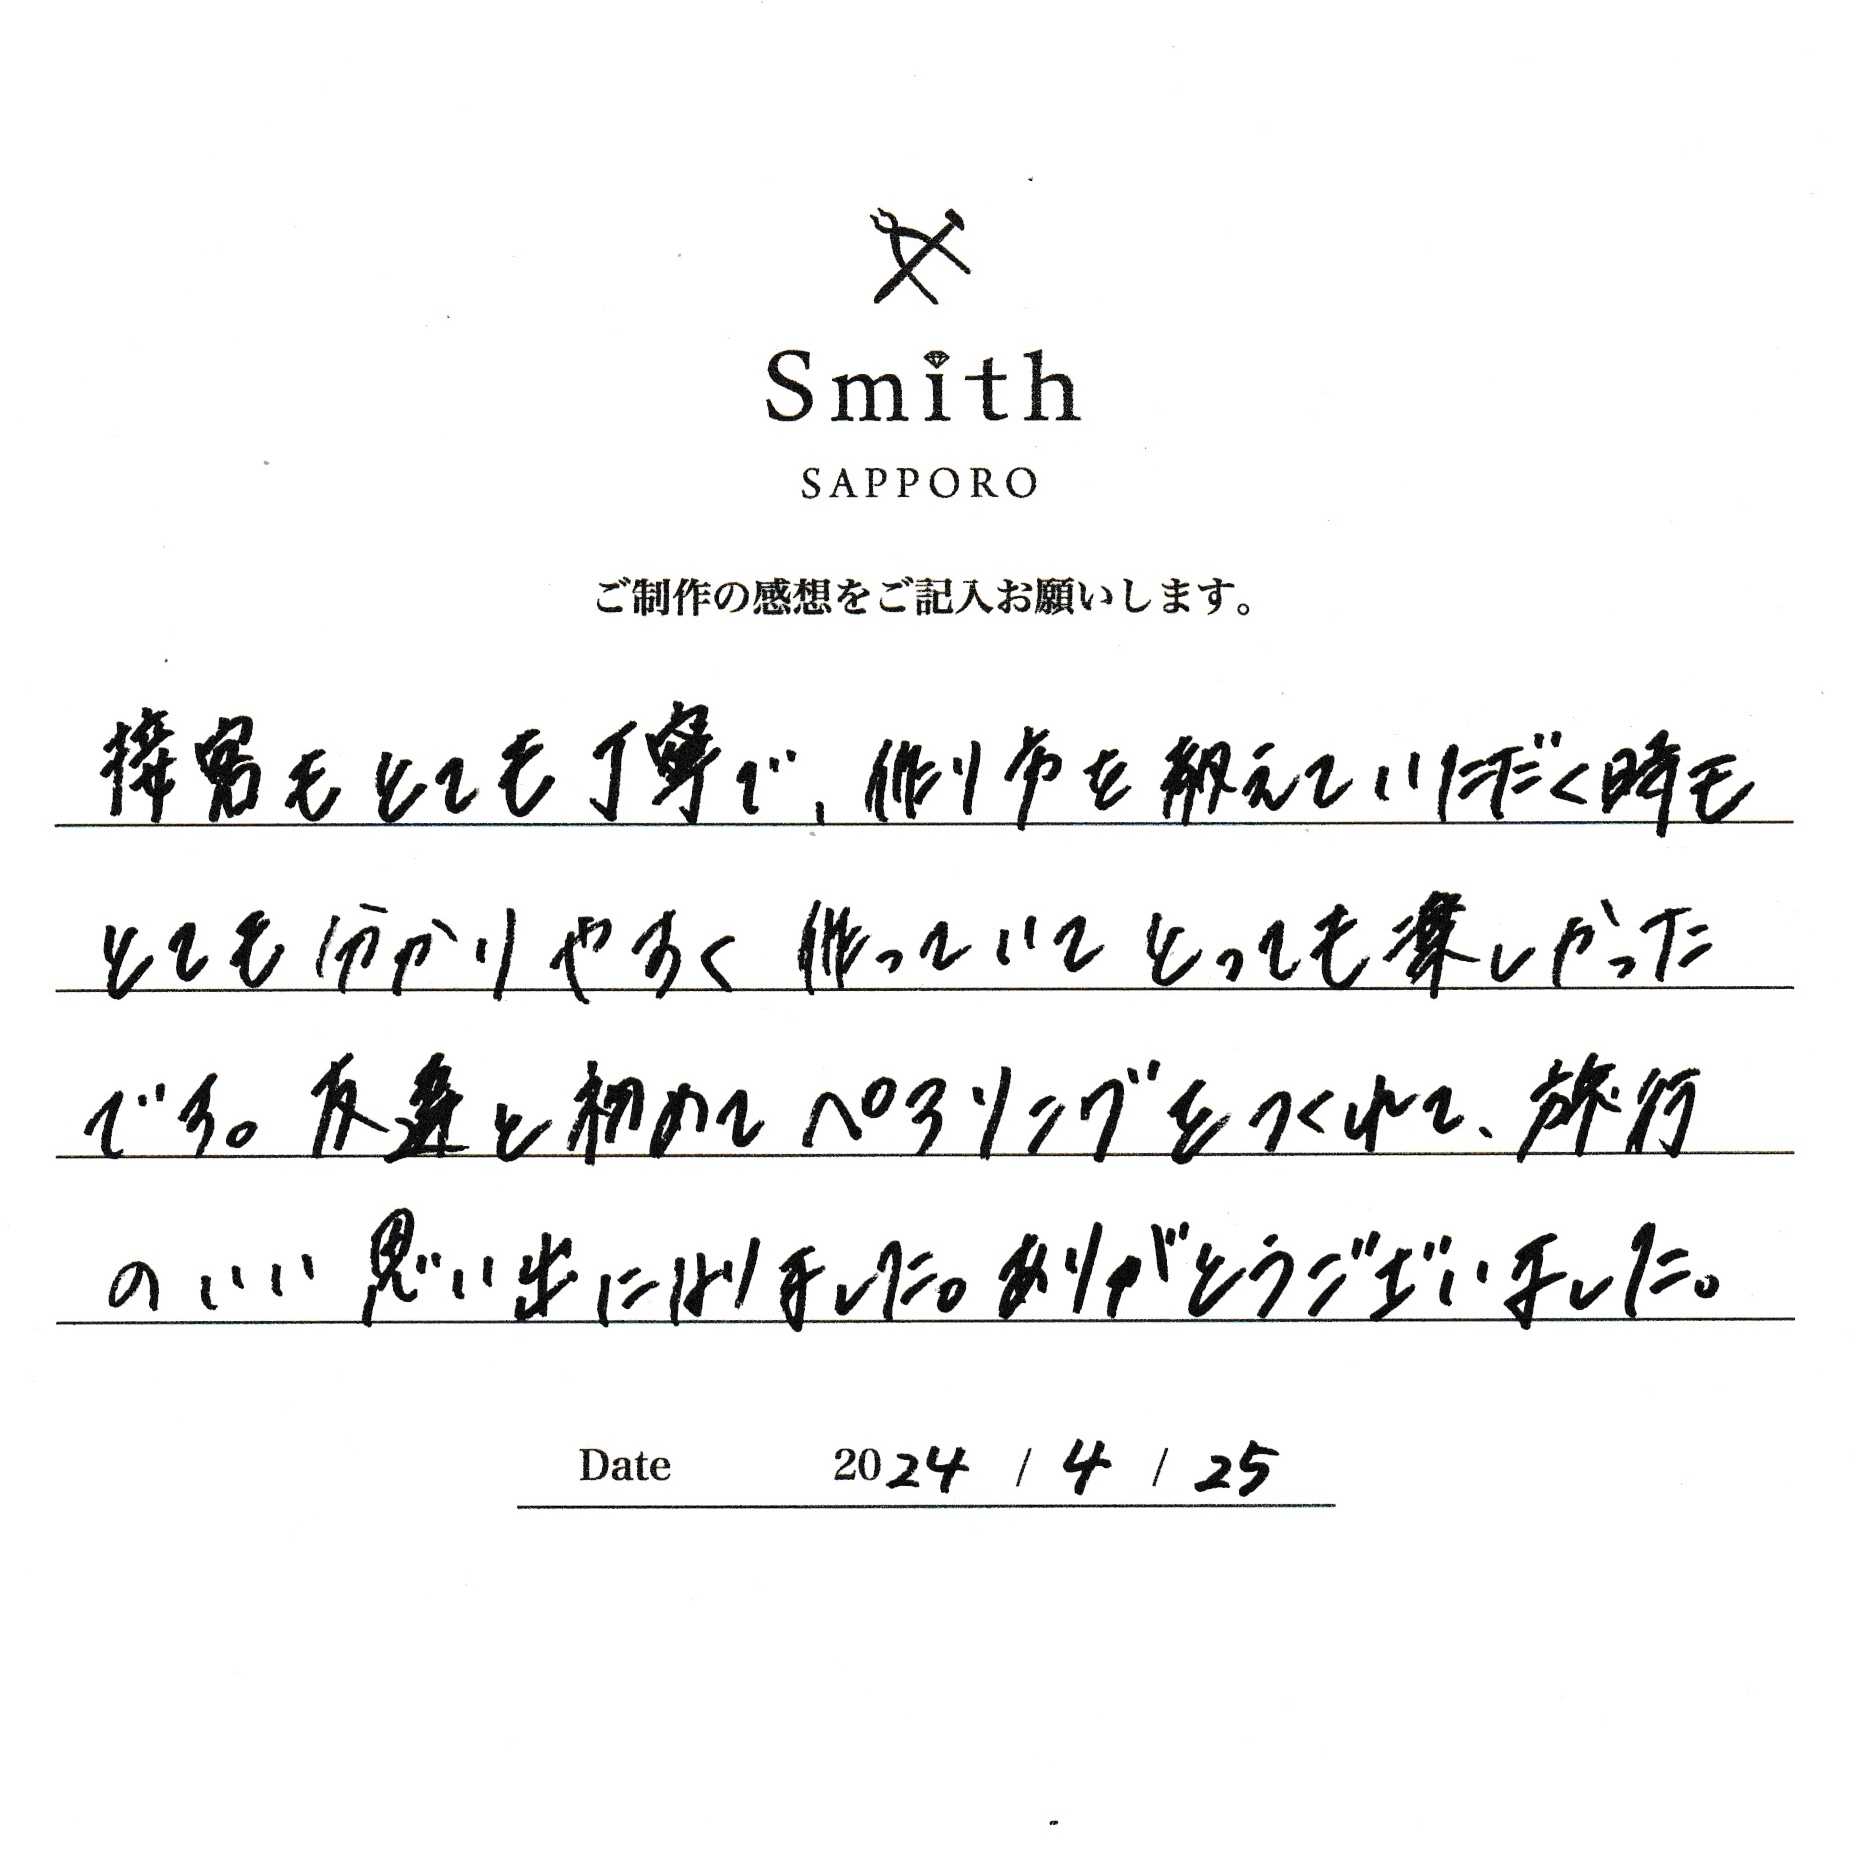 Smith
SAPPORO
ご制作の感想をご記入お願いします。
接客もとても丁寧で、作り方を教えていただく時も
とても分かりやすく作っていてとっても楽しかった
です。友達と初めてペアリングをつくれて、旅行
のいい思い出になりました。ありがとうございました。
Date 2024 / 4 / 25